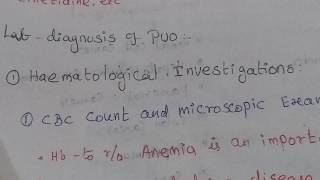 etidine, etc
Lab-diagnosis of PUO:-
① Haematological Investigations:
① CBC Count and microscopic Exam
* Hb - to r/o Anemia is an import
disease